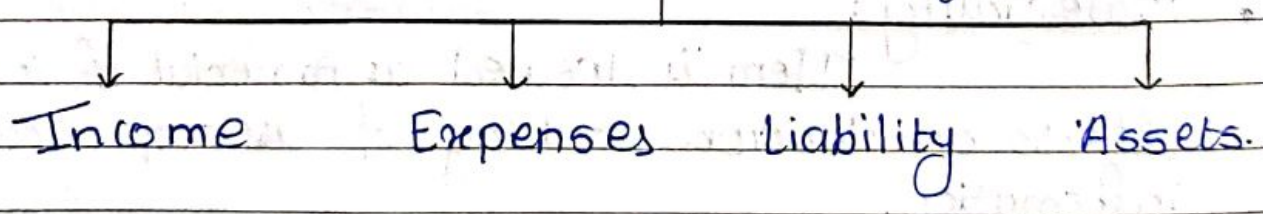 Income Expenses Liability Assets.